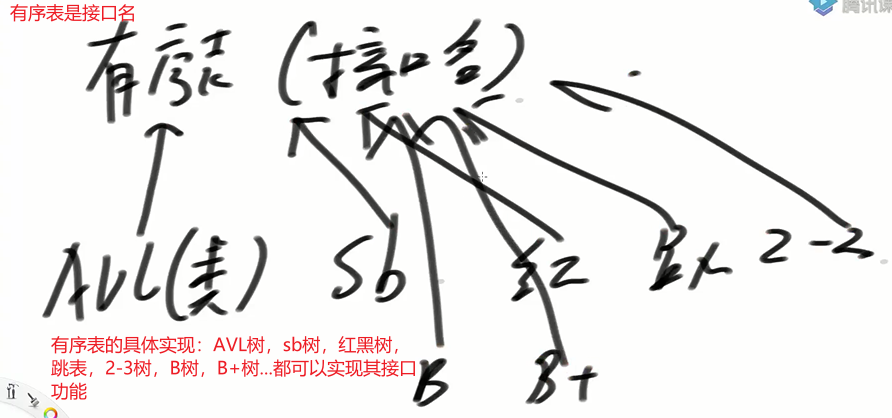 有序表是接口名
腾讯课
有序表（接口名）
AVL(表) Sb 红 跳 2-2
有序表的具体实现：AVL树，sb树，红黑树，
跳表，2-3树，B树，B+树...都可以实现其接口
功能
B B+